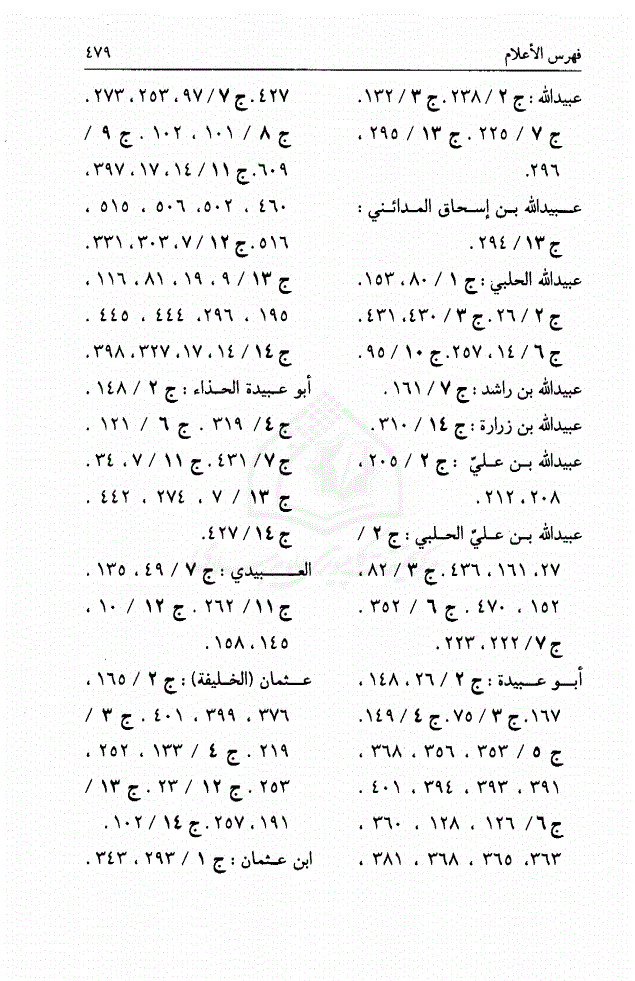 فهرس الأعلام ٤٧٩
عبيدالله : ج ٢ / ٢٣٨. ج ٣ / ١٣٢.
ج ٧ / ٢٢٥ . ج ١٣ / ٢٩٥ ،
٢٩٦.
عـبيدالله بـن إسـحاق المـدائـني :
ج ١٣ / ٢٩٤ .
عبيدالله الحلبي : ج ١ / ٨٠، ١٥٣.
ج ٢ / ٢٦. ج ٣ / ٤٣٠، ٤٣١.
ج ٦ / ١٤، ٢٥٧. ج ١٠ / ٩٥.
عبيدالله بن راشد : ج ٧ / ١٦١.
عبيدالله بن زرارة : ج ١٤ / ٣١٠.
عبيدالله بـن عـليّ : ج ٢ / ٢٠٥ ،
٢٠٨، ٢١٢.
عبيدالله بـن عـليّ الحـلبي : ج ٢ /
٢٧، ١٦١ ، ٤٣٦. ج ٣ / ٨٢ ،
١٥٢ ، ٤٧٠ . ج ٦ / ٣٥٢ .
ج ٧ / ٢٢٢ ، ٢٢٣.
أبـو عـبيدة : ج ٢ / ٢٦ ، ١٤٨ ،
١٦٧. ج ٣ / ٧٥. ج ٤ / ١٤٩.
ج ٥ / ٣٥٣ ، ٣٥٦ ، ٣٦٨ ،
٣٩١ ، ٣٩٣ ، ٣٩٤ ، ٤٠١ .
ج ٦ / ١٢٦ ، ١٢٨ ، ٣٦٠ ،
٣٦٣، ٣٦٥ ، ٣٦٨ ، ٣٨١ ،
٤٢٧. ج ٧ / ٩٧ ، ٢٥٣ ، ٢٧٣.
ج ٨ / ١٠١ ، ١٠٢ . ج ٩ /
٦٠٩. ج ١١ / ١٤ ، ١٧ ، ٣٩٧،
٤٦٠ ، ٥٠٢، ٥٠٦ ، ٥١٥ ،
٥١٦. ج ١٢ / ٧، ٣٠٣، ٣٣١.
ج ١٣ / ٩ ، ١٩ ، ٨١ ، ١١٦ ،
١٩٥ ، ٢٩٦، ٤٤٤ ، ٤٤٥ .
ج ١٤ / ١٤ ، ١٧، ٣٢٧، ٣٩٨.
أبو عـبيدة الحـذاء : ج ٢ / ١٤٨ .
ج ٤ / ٣١٩ . ج ٦ / ١٢١ .
ج ٧ / ٤٣١. ج ١١ / ٧ ، ٣٤.
ج ١٣ / ٧ ، ٢٧٤ ، ٤٤٢ .
ج ١٤ / ٤٢٧.
العـــبيدي : ج ٧ / ٤٩ ، ١٣٥ .
ج ١١ / ٢٦٢ . ج ١٢ / ١٠ ،
١٤٥ ، ١٥٨.
عـثمان (الخـليفة) : ج ٢ / ١٦٥ ،
٣٧٦ ، ٣٩٩ ، ٤٠١ . ج ٣ /
٢١٩ . ج ٤ / ١٣٣ ، ٢٥٢ ،
٢٥٣ . ج ١٢ / ٢٣ . ج ١٣ /
١٩١ ، ٢٥٧. ج ١٤ / ١٠٢.
ابن عـثمان : ج ١ / ٢٩٣ ، ٣٤٣ .